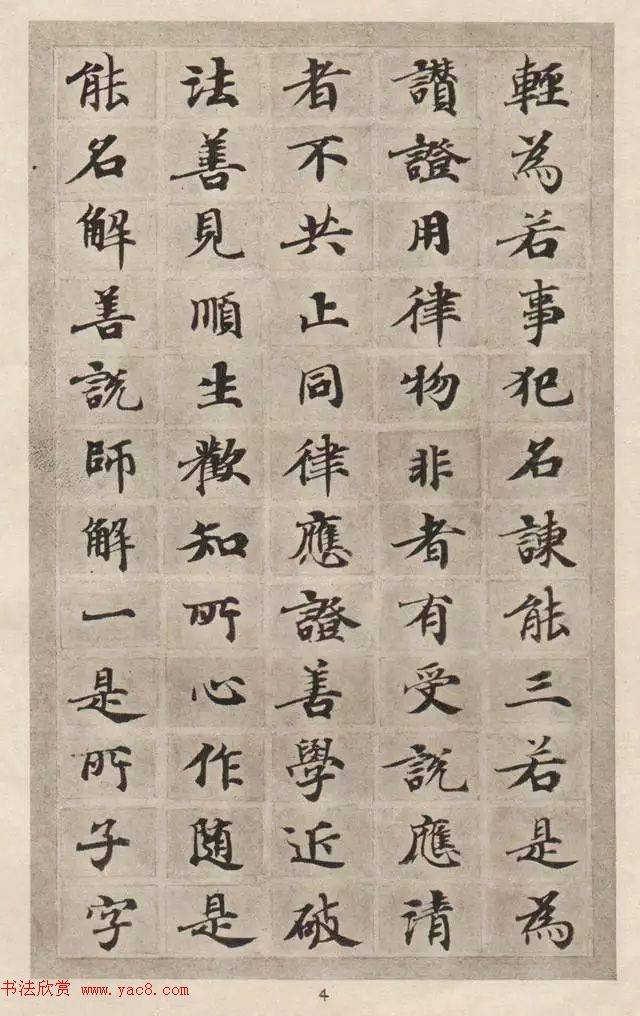 輕為若事犯名諫能三若是為
讃證用律物非者有受説應請
者不共止同律應證善學近破
法善見順生歡知所心作随是
能名解善説師解一是所子字
4
书法欣赏 www.yac8.com